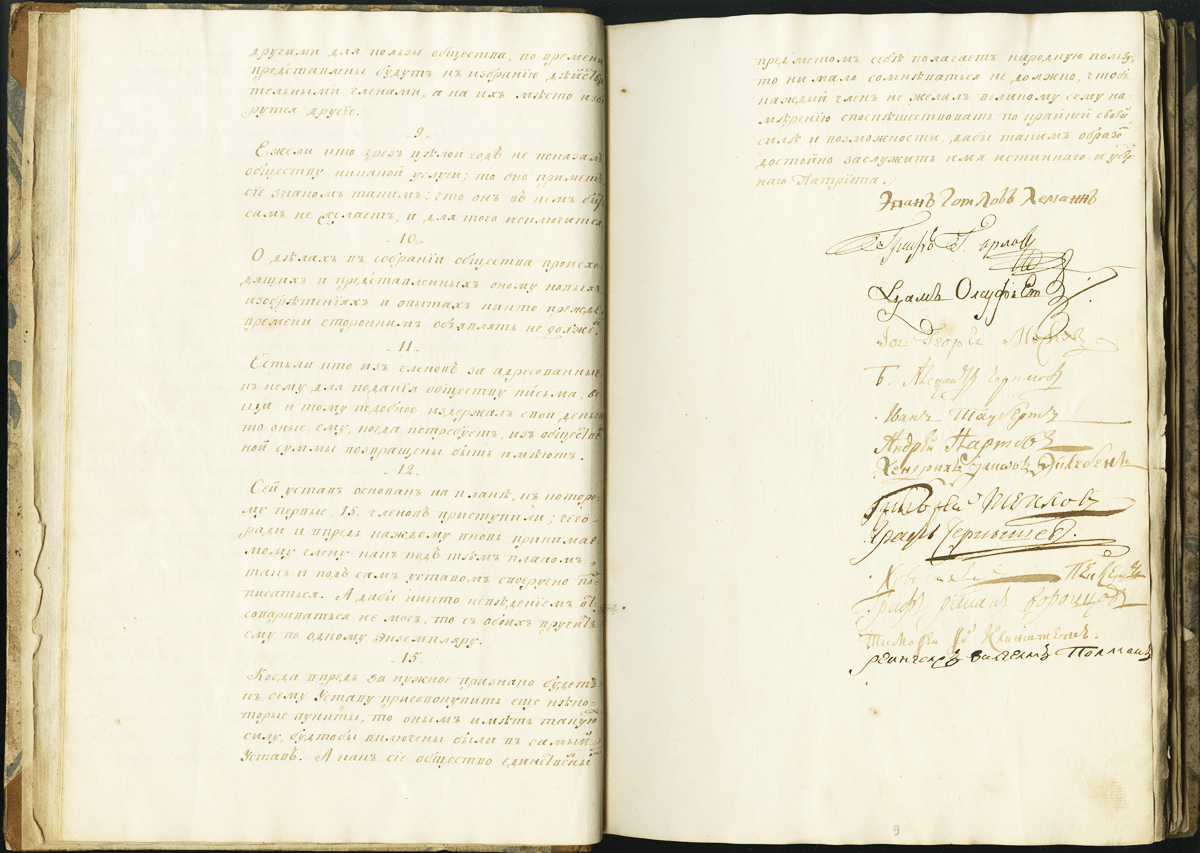 другими для пользы общества, по времени
представлены будутъ къ избранію дѣйстви
тельными членами, а на ихъ мѣсто избе
рутся другіе.
9
Ежели кто чрезъ цѣлой годъ не показалъ
обществу никакой услуги; то оно приметъ
сіе знакомъ такимъ; что онъ въ немъ быть
самъ не желаетъ, и для того исключится
10.
О дѣлахъ въ собраніи общества происхо-
дящихъ и представленныхъ оному новыхъ
изобрѣтеніяхъ и опытахъ никто прежде
времени стороннимъ объявлять не долже.
11
Естьли кто изъ членовъ за адресованные
къ нему для поданія обществу письма, ве
щи и тому подобное издержалъ свои деньги
то оные ему, когда потребуетъ, изъ обществ
ной суммы возвращены быть имѣютъ.
12.
Сей уставъ основанъ на планѣ, къ которо-
му первые 15. членовъ приступили; чего
ради и впредь каждому вновь принимае
мому члену какъ подъ тѣмъ планомъ,
такъ и подъ симъ уставомъ своеручно по
писаться. А дабы никто невѣденіемъ от
говариваться не могъ, то съ обоихъ вручить
ему по одному экземпляру.
15.
Когда впредь за нужное признано будетъ
къ сему Уставу присовокупить еще нѣко-
торые пункты, то онымъ имѣть такую
силу, будтобы включены были въ самый
Уставъ. А какъ сіе общество единственны
предметомъ себѣ полагаетъ народную пользу,
то ни мало сомнѣваться не должно, чтобъ
каждый членъ не желалъ великому сему на-
мѣренію споспѣшествовать по крайней своей
силѣ и возможности, дабы такимъ образо
достойно заслужить имя истиннаго и усер
наго Патріота.
Готловъ Леманнъ
Графъ Г Орловъ
Адамъ Олсуфьевъ
Георгъ
Б.
Иванъ Таубертъ
Андрей Нартовъ
Григорей Тепловъ
Графъ Чернышев.
Графъ Романъ Воронцовъ
Тимофей фо Клингштетъ.